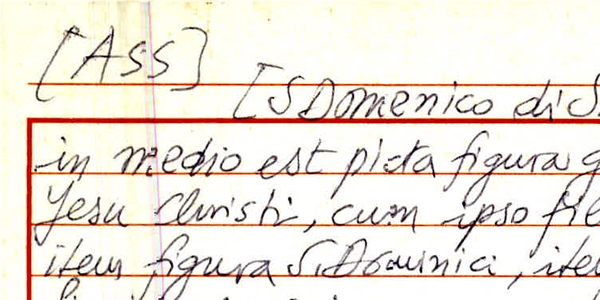 [ASS]
[S Domenico di S.
in medio est picta figura g
Jesu Christi, cum ipso file
item figura S. Dominici, item